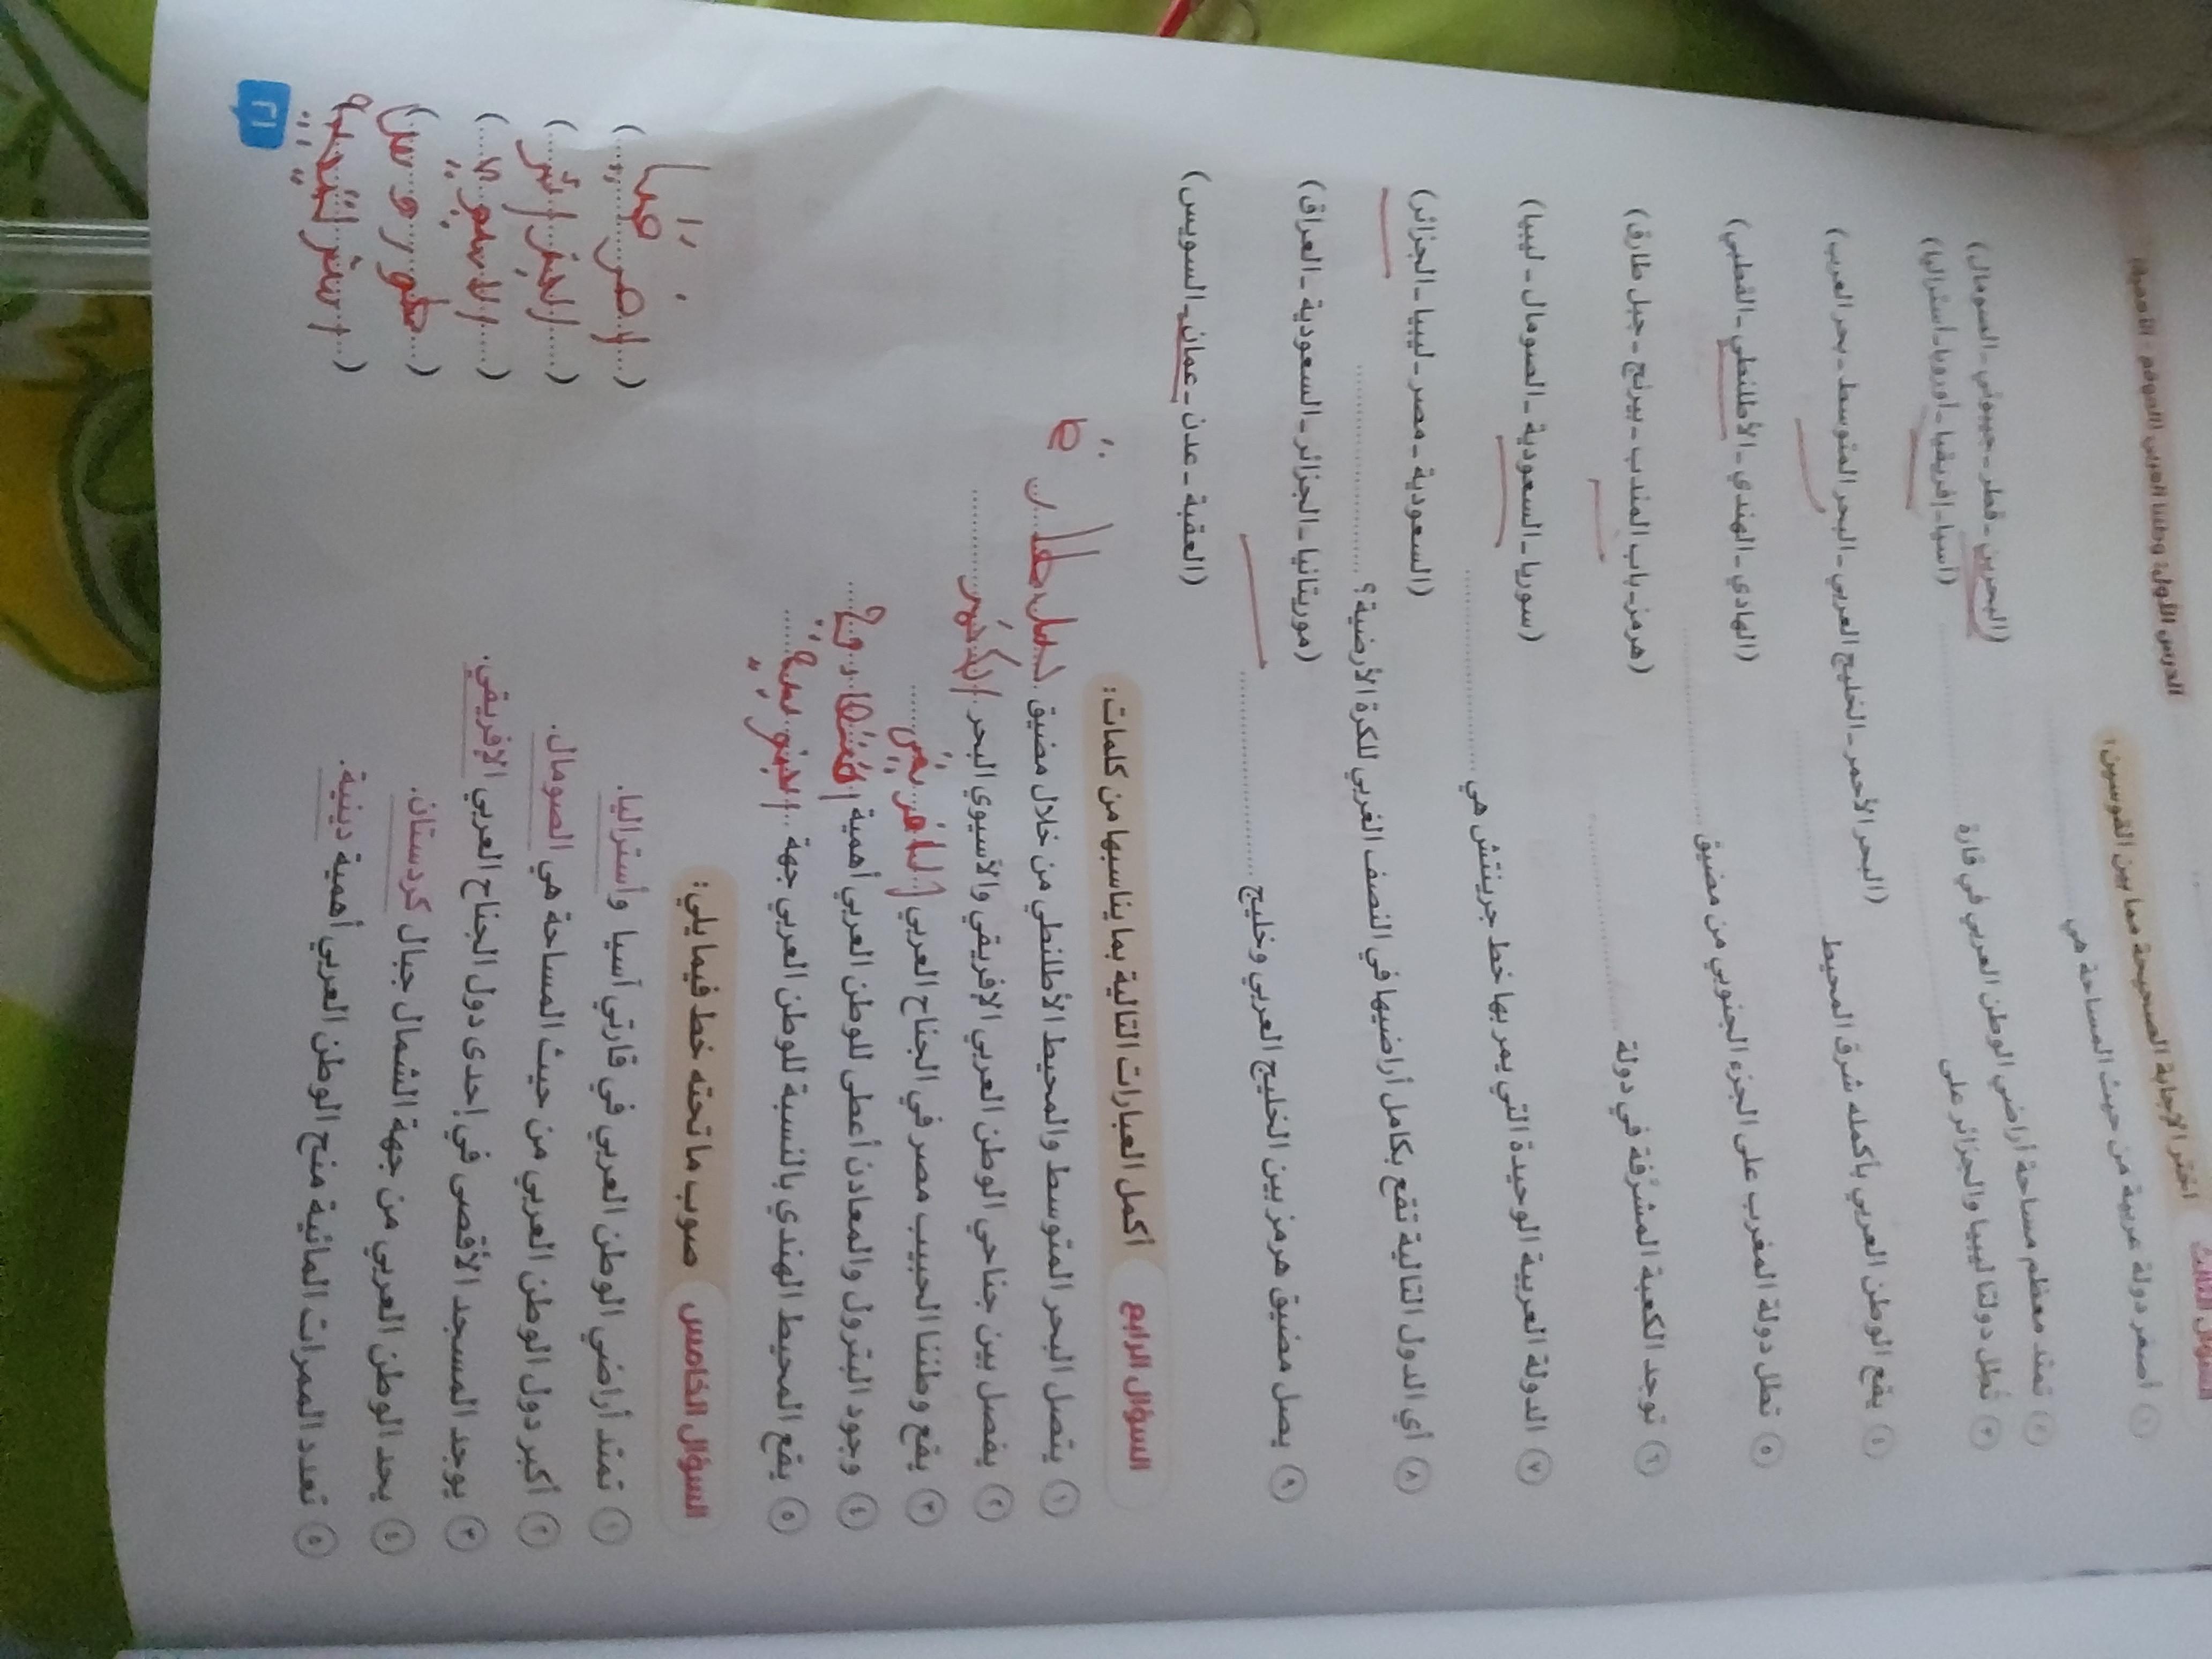 الدرس الأول: وطننا العربي (الموقع - الأهمية)
السؤال الثالث اختر الإجابة الصحيحة مما بين القوسين:
١ أصغر دولة عربية من حيث المساحة هي .......... (البحرين - قطر - جيبوتي - الصومال)
٢ تمتد معظم مساحة أراضي الوطن العربي في قارة .......... (آسيا - إفريقيا - أوروبا - أستراليا)
٣ تُطل دولتا ليبيا والجزائر على ..........
(البحر الأحمر - الخليج العربي - البحر المتوسط - بحر العرب)
٤ يقع الوطن العربي بأكمله شرق المحيط .......... (الهادي - الهندي - الأطلنطي - القطبي)
٥ تطل دولة المغرب على الجزء الجنوبي من مضيق .......... (هرمز - باب المندب - بيرنج - جبل طارق)
٦ توجد الكعبة المشرَّفة في دولة .......... (سوريا - السعودية - الصومال - ليبيا)
٧ الدولة العربية الوحيدة التي يمر بها خط جرينتش هي .......... (السعودية - مصر - ليبيا - الجزائر)
٨ أي الدول التالية تقع بكامل أراضيها في النصف الغربي للكرة الأرضية؟ ..........
(موريتانيا - الجزائر - السعودية - العراق)
٩ يصل مضيق هرمز بين الخليج العربي وخليج .......... (العقبة - عدن - عمان - السويس)
السؤال الرابع أكمل العبارات التالية بما يناسبها من كلمات:
١ يتصل البحر المتوسط والمحيط الأطلنطي من خلال مضيق جبل طارق
٢ يفصل بين جناحي الوطن العربي الإفريقي والآسيوي البحر الأحمر
٣ يقع وطننا الحبيب مصر في الجناح العربي الافريقي
٤ وجود البترول والمعادن أعطى للوطن العربي أهمية
٥ يقع المحيط الهندي بالنسبة للوطن العربي جهة
السؤال الخامس صوب ما تحته خط فيما يلي:
١ تمتد أراضي الوطن العربي في قارتي آسيا وأستراليا.
٢ أكبر دول الوطن العربي من حيث المساحة هي الصومال. (الجزائر)
٣ يوجد المسجد الأقصى في إحدى دول الجناح العربي الإفريقي.
٤ يحد الوطن العربي من جهة الشمال جبال كردستان. (طوروس)
٥ تعدد الممرات المائية منح الوطن العربي أهمية دينية.
٢١